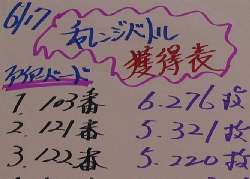 6/17
チャレンジバトル
獲得表
1. 103番 6.276枚
2. 121番 5.321枚
3. 122番 5.220枚